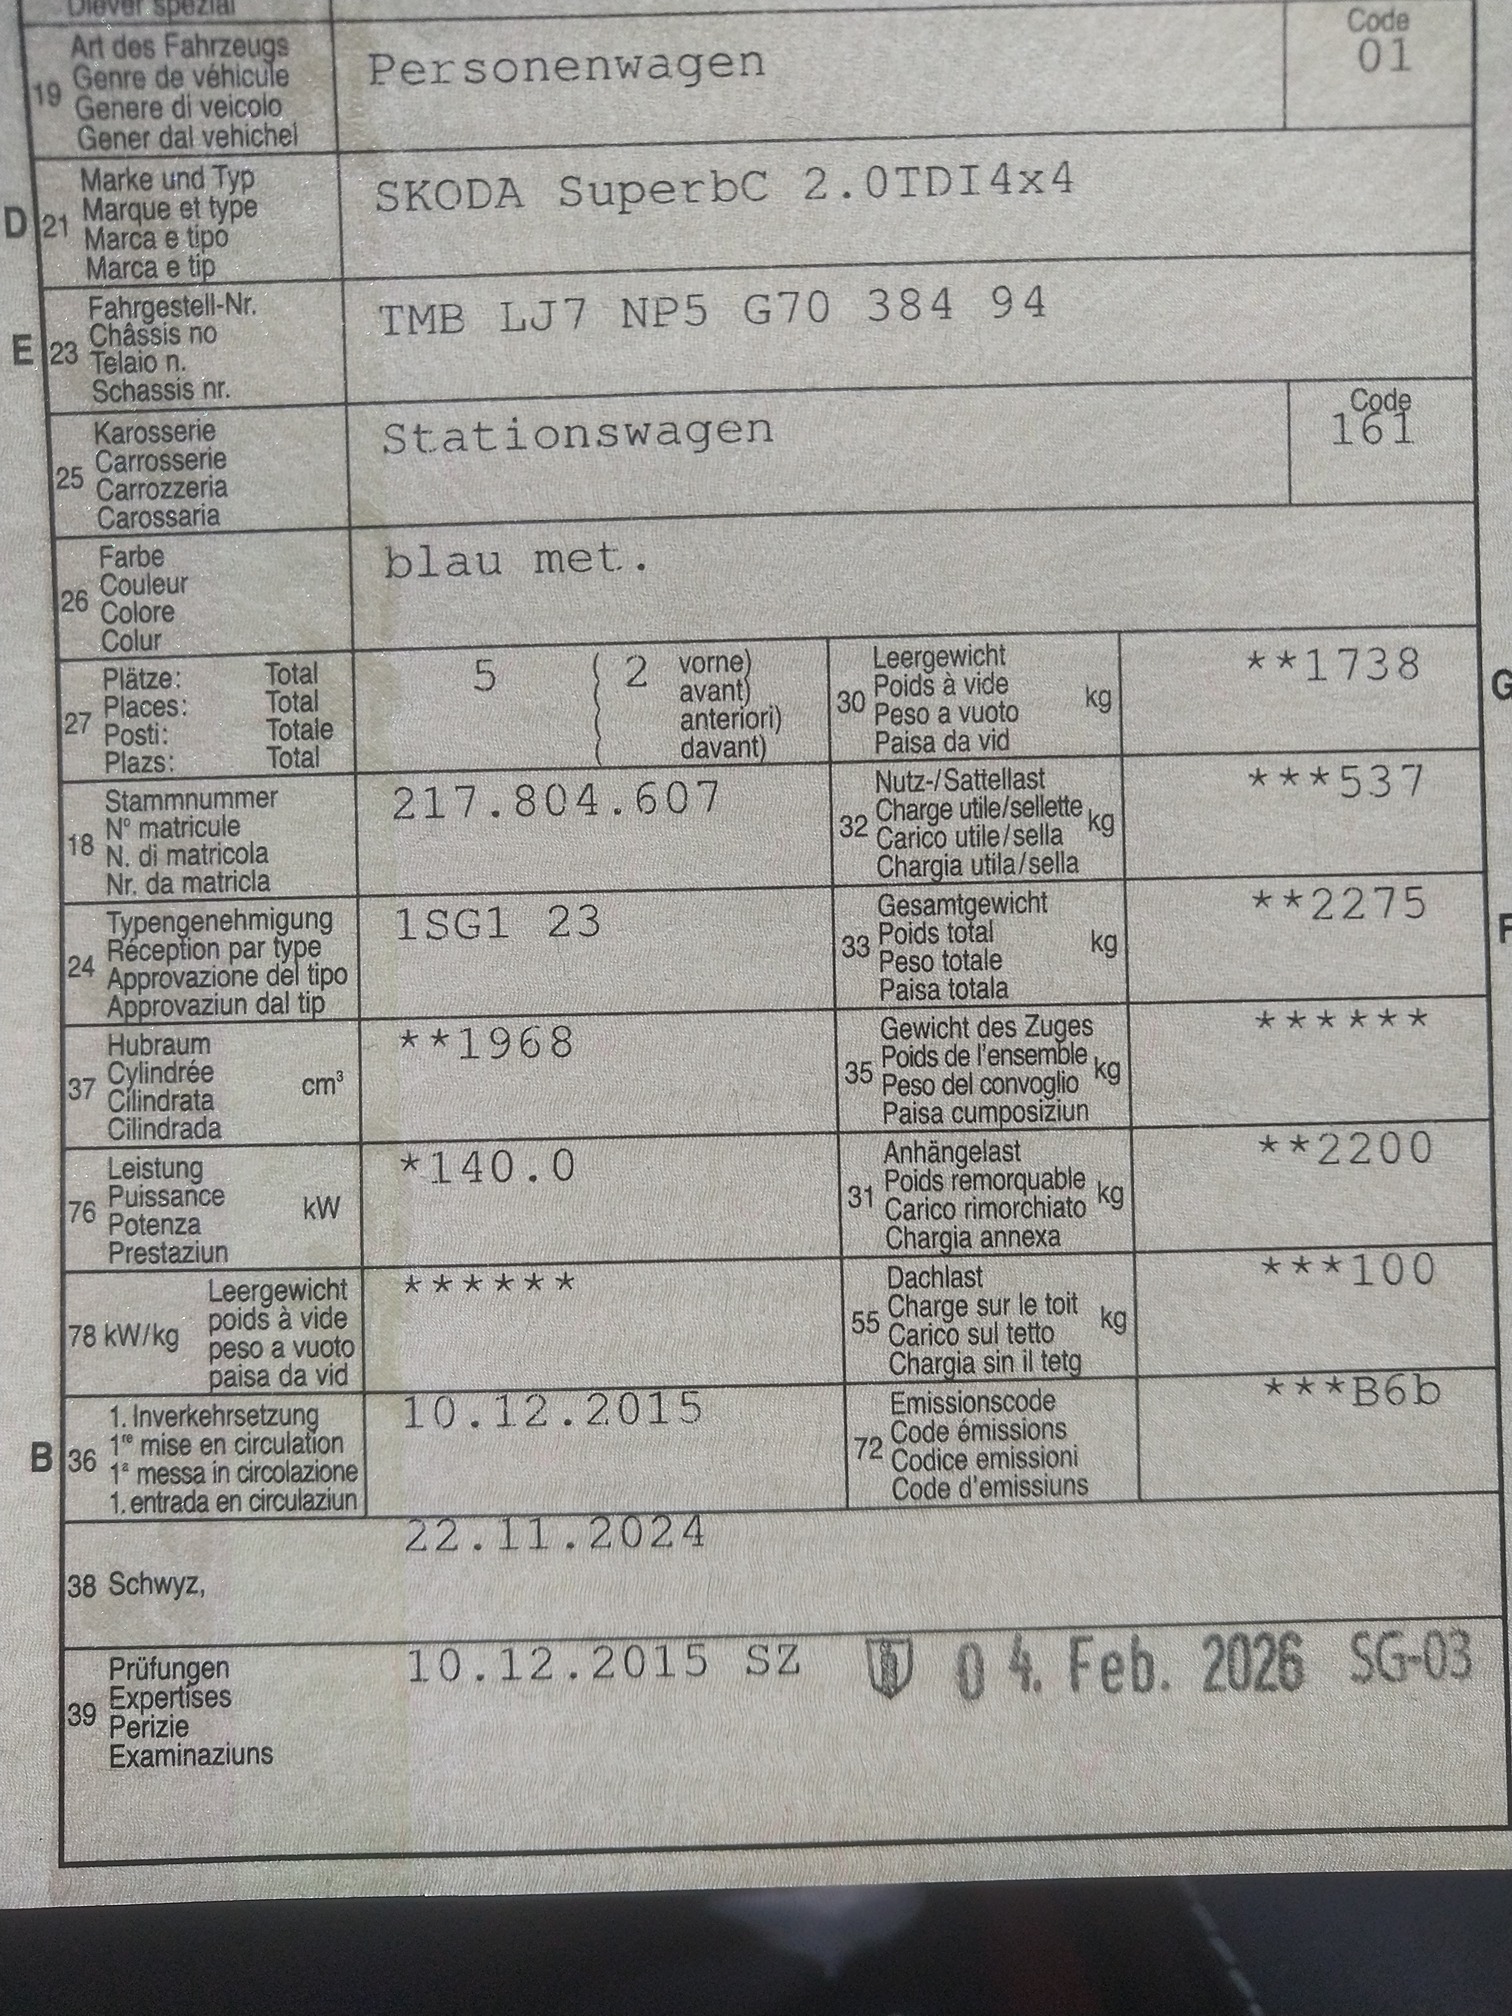 Diever spezial
19 Art des Fahrzeugs
Genre de véhicule
Genere di veicolo
Gener dal vehichel
Personenwagen
Code
01
D 21 Marke und Typ
Marque et type
Marca e tipo
Marca e tip
SKODA SuperbC 2.0TDI4x4
E 23 Fahrgestell-Nr.
Châssis no
Telaio n.
Schassis nr.
TMB LJ7 NP5 G70 384 94
25 Karosserie
Carrosserie
Carrozzeria
Carossaria
Stationswagen
Code
161
26 Farbe
Couleur
Colore
Colur
blau met.
27 Plätze: Total
Places: Total
Posti: Totale
Plazs: Total
5 ( 2 vorne)
( avant)
( anteriori)
( davant)
30 Leergewicht
Poids à vide kg
Peso a vuoto
Paisa da vid
**1738
G
18 Stammnummer
N° matricule
N. di matricola
Nr. da matricla
217.804.607
32 Nutz-/Sattellast
Charge utile/sellette kg
Carico utile/sella
Chargia utila/sella
***537
24 Typengenehmigung
Réception par type
Approvazione del tipo
Approvaziun dal tip
1SG1 23
33 Gesamtgewicht
Poids total kg
Peso totale
Paisa totala
**2275
F
37 Hubraum
Cylindrée cm³
Cilindrata
Cilindrada
**1968
35 Gewicht des Zuges
Poids de l'ensemble kg
Peso del convoglio
Paisa cumposiziun
******
76 Leistung
Puissance kW
Potenza
Prestaziun
*140.0
31 Anhängelast
Poids remorquable kg
Carico rimorchiato
Chargia annexa
**2200
78 kW/kg Leergewicht
poids à vide
peso a vuoto
paisa da vid
******
55 Dachlast
Charge sur le toit kg
Carico sul tetto
Chargia sin il tetg
***100
B 36 1. Inverkehrsetzung
1re mise en circulation
1a messa in circolazione
1. entrada en circulaziun
10.12.2015
72 Emissionscode
Code émissions
Codice emissioni
Code d'emissiuns
***B6b
38 Schwyz,
22.11.2024
39 Prüfungen
Expertises
Perizie
Examinaziuns
10.12.2015 SZ 04. Feb. 2026 SG-03